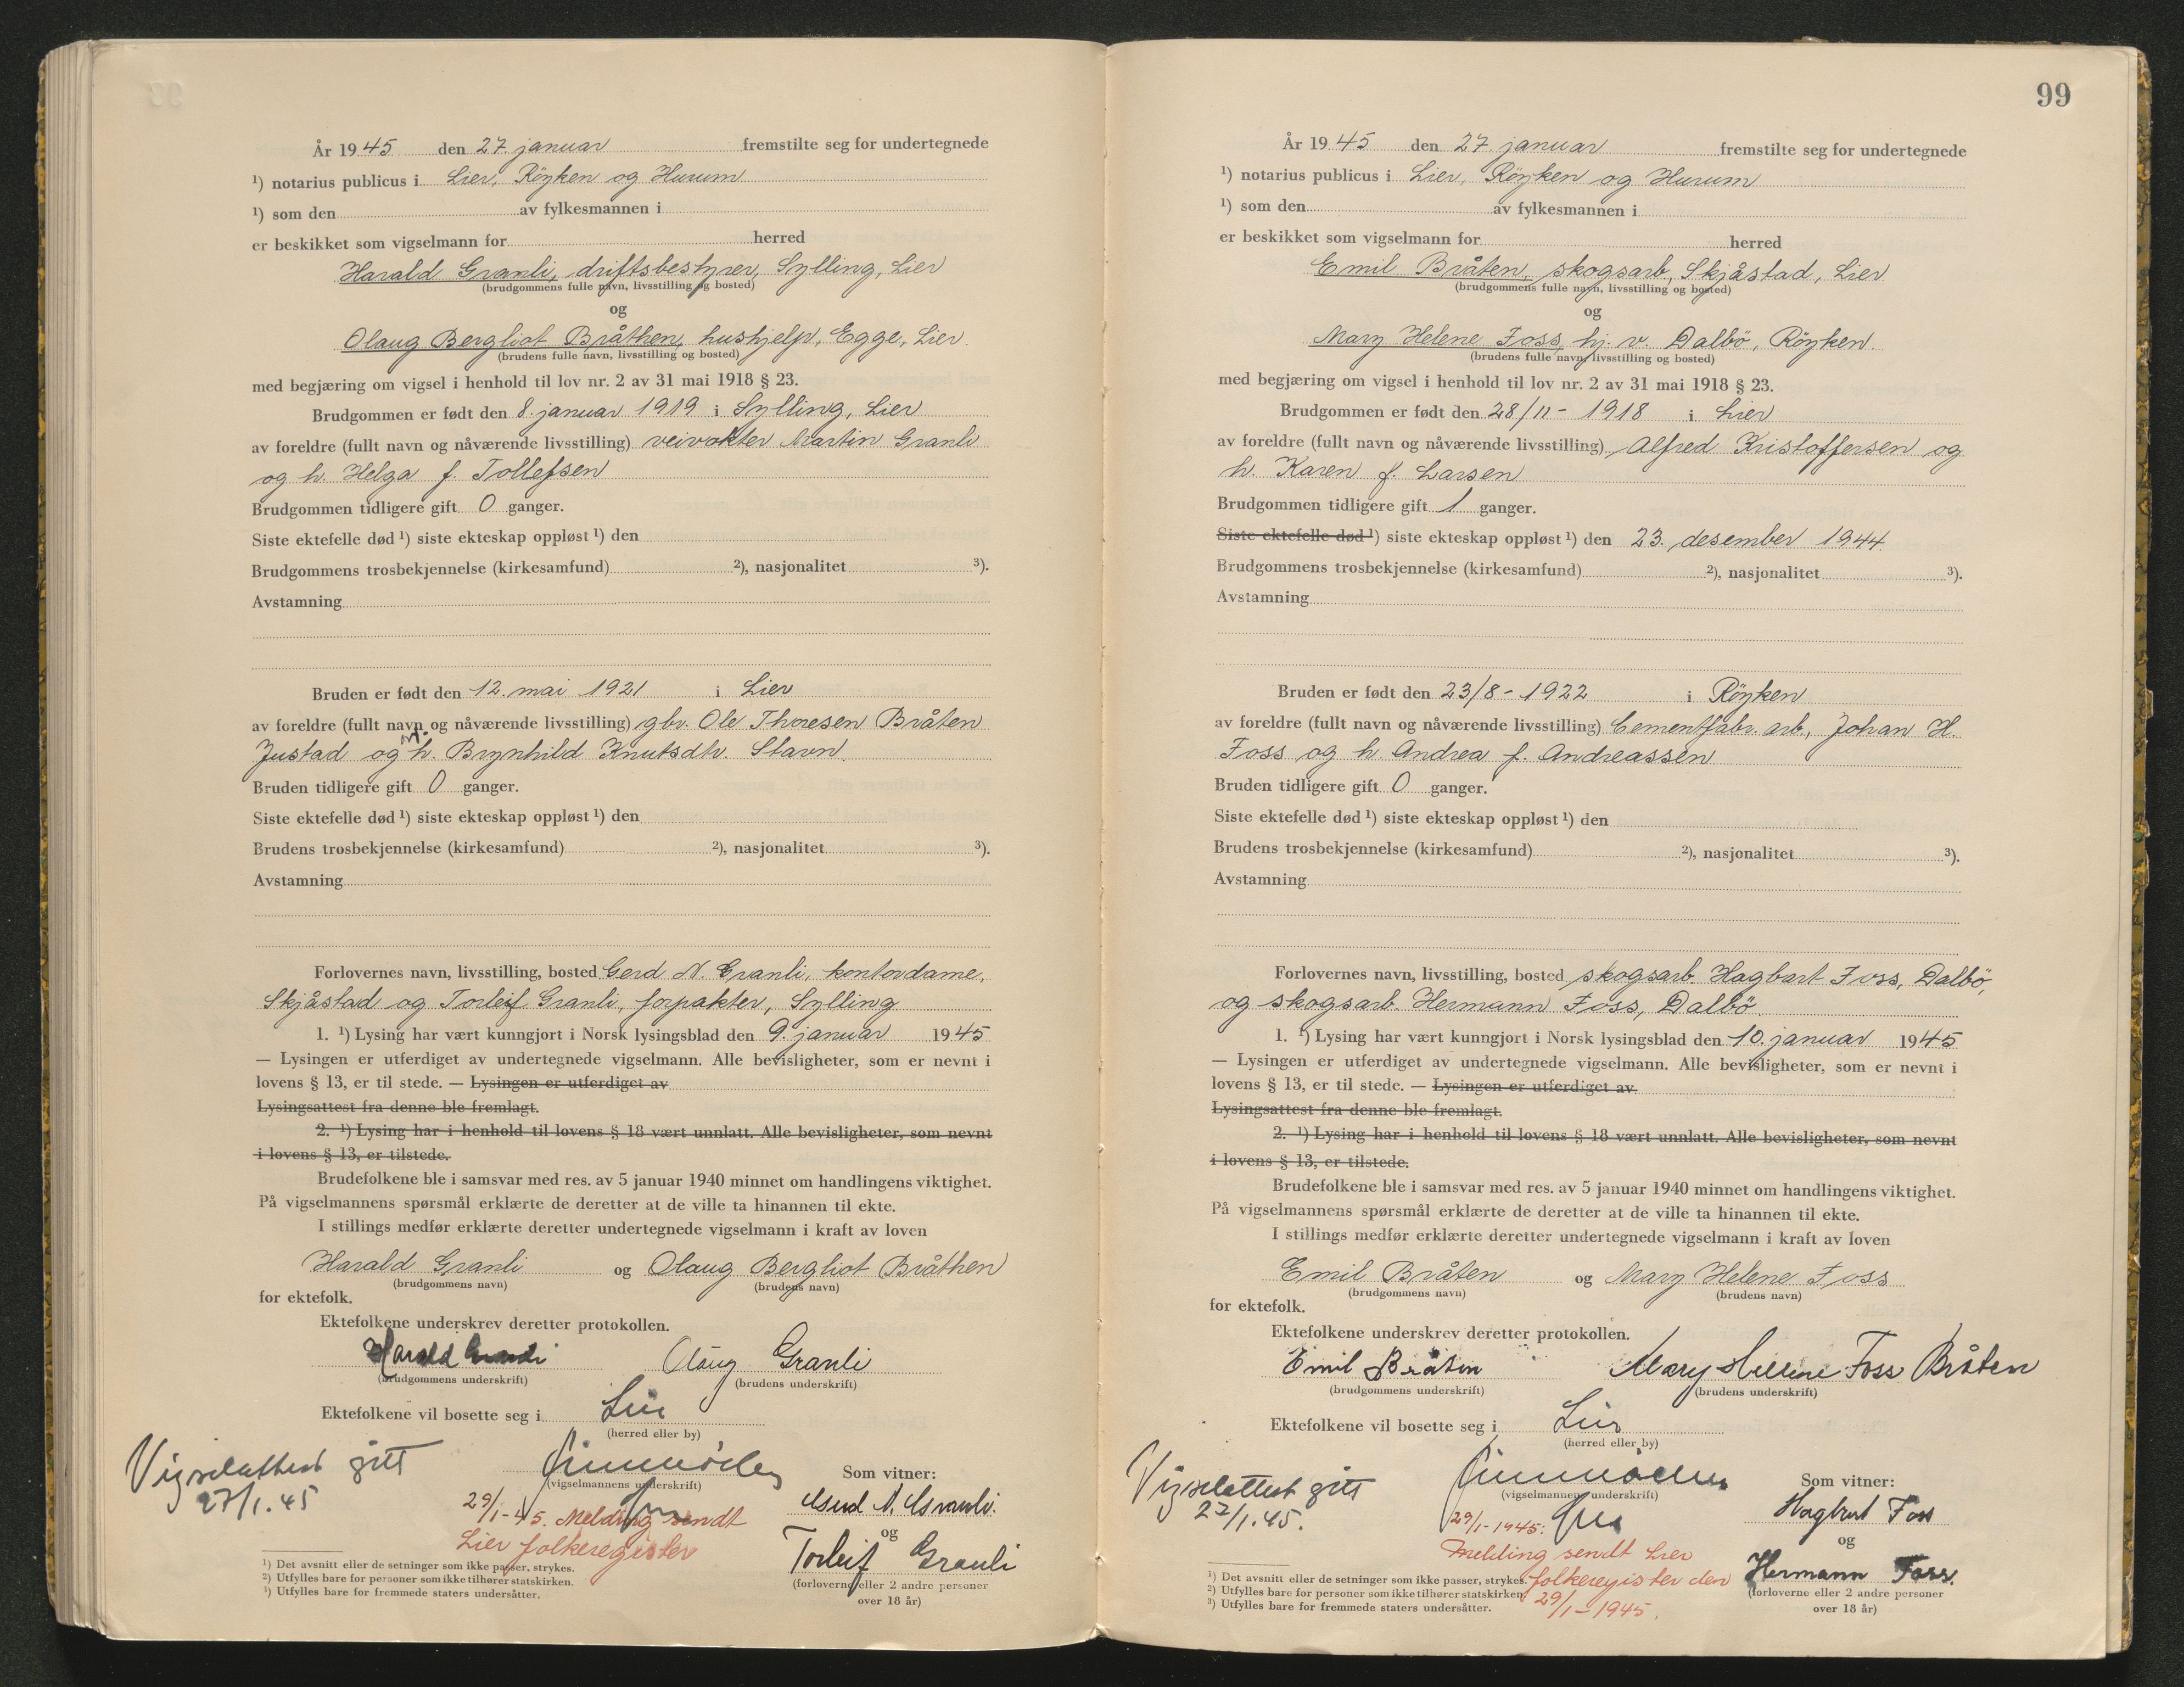 År 1945 den 27. januar fremstilte seg for undertegnede
¹) notarius publicus i Lier, Röyken og Hurum
¹) som den av fylkesmannen i
er beskikket som vigselmann for herred
Harald Granli, driftsbestyrer, Sylling, Lier
(brudgommens fulle navn, livsstilling og bosted)
og
Olaug Bergliot Bråthen, hushjelp, Egge, Lier.
(brudens fulle navn, livsstilling og bosted)
med begjæring om vigsel i henhold til lov nr. 2 av 31 mai 1918 § 23.
Brudgommen er født den 8. januar 1919 i Sylling, Lier
av foreldre (fullt navn og nåværende livsstilling) veivokter Martin Granli
og h. Helga f. Tollefsen
Brudgommen tidligere gift 0 ganger.
Siste ektefelle død ¹) siste ekteskap oppløst ¹) den
Brudgommens trosbekjennelse (kirkesamfund) ²), nasjonalitet ³).
Avstamning
Bruden er født den 12. mai 1921 i Lier
av foreldre (fullt navn og nåværende livsstilling) gbr. Ole Thoresen Bråten
Justad og h. Brynhild Knutsdtr. Stavn.
Bruden tidligere gift 0 ganger.
Siste ektefelle død ¹) siste ekteskap oppløst ¹) den
Brudens trosbekjennelse (kirkesamfund) ²), nasjonalitet ³).
Avstamning
Forlovernes navn, livsstilling, bosted Gerd N. Granli, kontordame,
Skjåstad og Torleif Granli, forpakter, Sylling
1. ¹) Lysing har vært kunngjort i Norsk lysingsblad den 9. januar 1945
— Lysingen er utferdiget av undertegnede vigselmann. Alle bevisligheter, som er nevnt i
lovens § 13, er til stede. — Lysingen er utferdiget av
Lysingsattest fra denne ble fremlagt.
2. ¹) Lysing har i henhold til lovens § 18 vært unnlatt. Alle bevisligheter, som nevnt
i lovens § 13, er tilstede.
Brudefolkene ble i samsvar med res. av 5 januar 1940 minnet om handlingens viktighet.
På vigselmannens spørsmål erklærte de deretter at de ville ta hinannen til ekte.
I stillings medfør erklærte deretter undertegnede vigselmann i kraft av loven
Harald Granli og Olaug Bergliot Bråthen
(brudgommens navn) (brudens navn)
for ektefolk.
Ektefolkene underskrev deretter protokollen.
Harald Granli Olaug Granli
(brudgommens underskrift) (brudens underskrift)
Ektefolkene vil bosette seg i Lier
(herred eller by)
Vigselattest gitt
27/1. 45
(vigselmannens underskrift)
Som vitner:
Gerd N. Granli.
og
Torleif Granli
(forloverne eller 2 andre personer
over 18 år)
29/1-45. Melding sendt
Lier folkeregister
¹) Det avsnitt eller de setninger som ikke passer, strykes.
²) Utfylles bare for personer som ikke tilhører statskirken.
³) Utfylles bare for fremmede staters undersåtter.
99
År 1945 den 27. januar fremstilte seg for undertegnede
¹) notarius publicus i Lier, Röyken og Hurum
¹) som den av fylkesmannen i
er beskikket som vigselmann for herred
Emil Bråten, skogsarb, Skjåstad, Lier
(brudgommens fulle navn, livsstilling og bosted)
og
Mary Helene Foss, hj. v. Dalbö, Röyken.
(brudens fulle navn, livsstilling og bosted)
med begjæring om vigsel i henhold til lov nr. 2 av 31 mai 1918 § 23.
Brudgommen er født den 28/11- 1918 i Lier
av foreldre (fullt navn og nåværende livsstilling) Alfred Kristoffersen og
h. Karen f. Larsen
Brudgommen tidligere gift 1 ganger.
Siste ektefelle død ¹) siste ekteskap oppløst ¹) den 23. desember 1944.
Brudgommens trosbekjennelse (kirkesamfund) ²), nasjonalitet ³).
Avstamning
Bruden er født den 23/8- 1922 i Röyken
av foreldre (fullt navn og nåværende livsstilling) Cementfabr. arb., Johan H.
Foss og h. Andrea f. Andreassen
Bruden tidligere gift 0 ganger.
Siste ektefelle død ¹) siste ekteskap oppløst ¹) den
Brudens trosbekjennelse (kirkesamfund) ²), nasjonalitet ³).
Avstamning
Forlovernes navn, livsstilling, bosted skogsarb. Hagbart Foss, Dalbö,
og skogsarb. Hermann Foss, Dalbö.
1. ¹) Lysing har vært kunngjort i Norsk lysingsblad den 10. januar 1945
— Lysingen er utferdiget av undertegnede vigselmann. Alle bevisligheter, som er nevnt i
lovens § 13, er til stede. — Lysingen er utferdiget av
Lysingsattest fra denne ble fremlagt.
2. ¹) Lysing har i henhold til lovens § 18 vært unnlatt. Alle bevisligheter, som nevnt
i lovens § 13, er tilstede.
Brudefolkene ble i samsvar med res. av 5 januar 1940 minnet om handlingens viktighet.
På vigselmannens spørsmål erklærte de deretter at de ville ta hinannen til ekte.
I stillings medfør erklærte deretter undertegnede vigselmann i kraft av loven
Emil Bråten og Mary Helene Foss
(brudgommens navn) (brudens navn)
for ektefolk.
Ektefolkene underskrev deretter protokollen.
Emil Bråten Mary Hellene Foss Bråten
(brudgommens underskrift) (brudens underskrift)
Ektefolkene vil bosette seg i Lier
(herred eller by)
Vigselattest gitt
27/1.45.
(vigselmannens underskrift)
Som vitner:
Hagbart Foss
og
Hermann Foss.
(forloverne eller 2 andre personer
over 18 år)
29/1-1945:
Melding sendt Lier
folkeregister den
29/1-1945.
¹) Det avsnitt eller de setninger som ikke passer, strykes.
²) Utfylles bare for personer som ikke tilhører statskirken.
³) Utfylles bare for fremmede staters undersåtter.